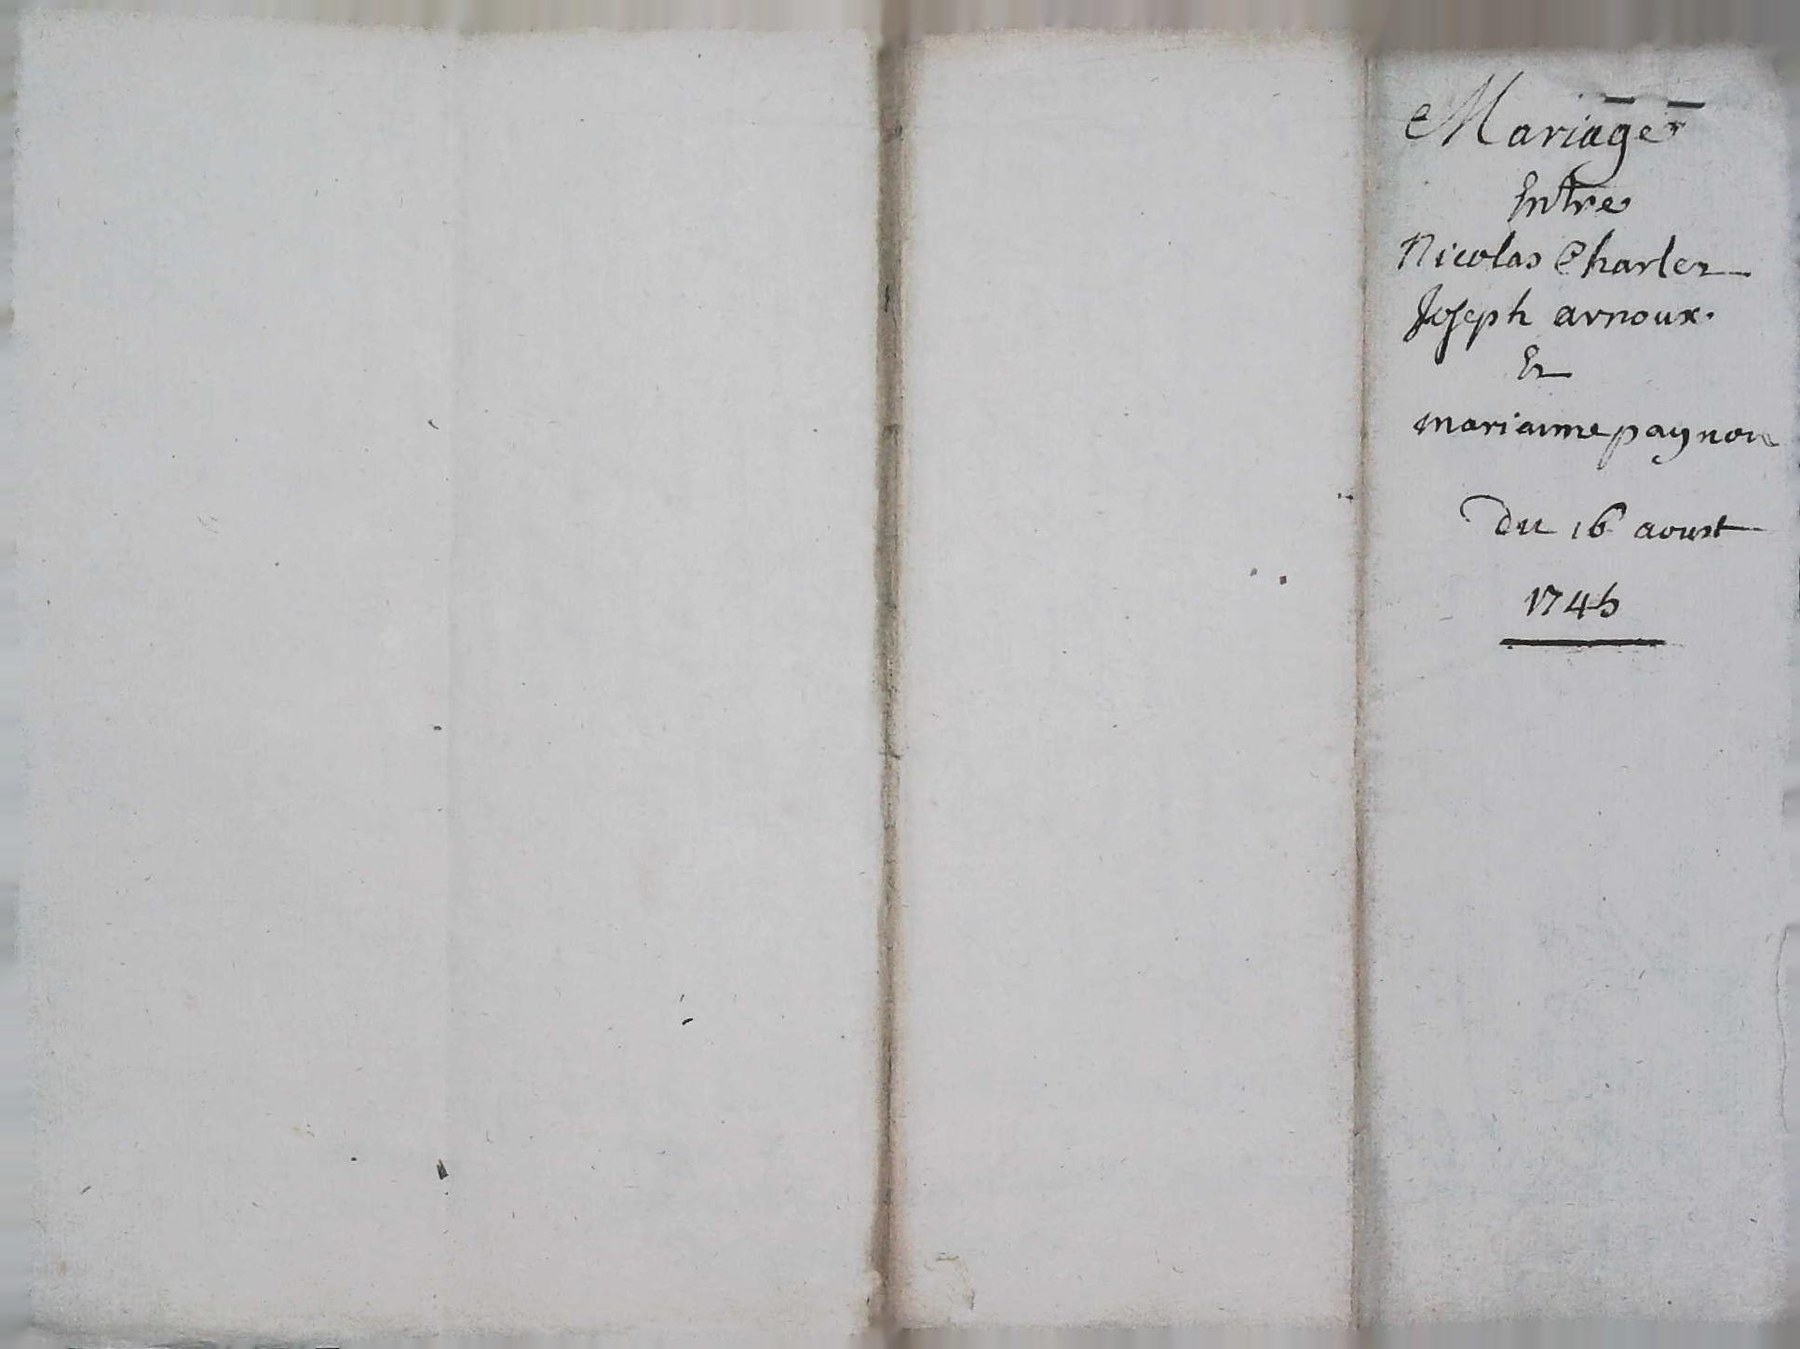 Mariage
Entre
Nicolas Charles
Joseph arnoux.
Et
marianne paynon
Du 16 aoust
1745